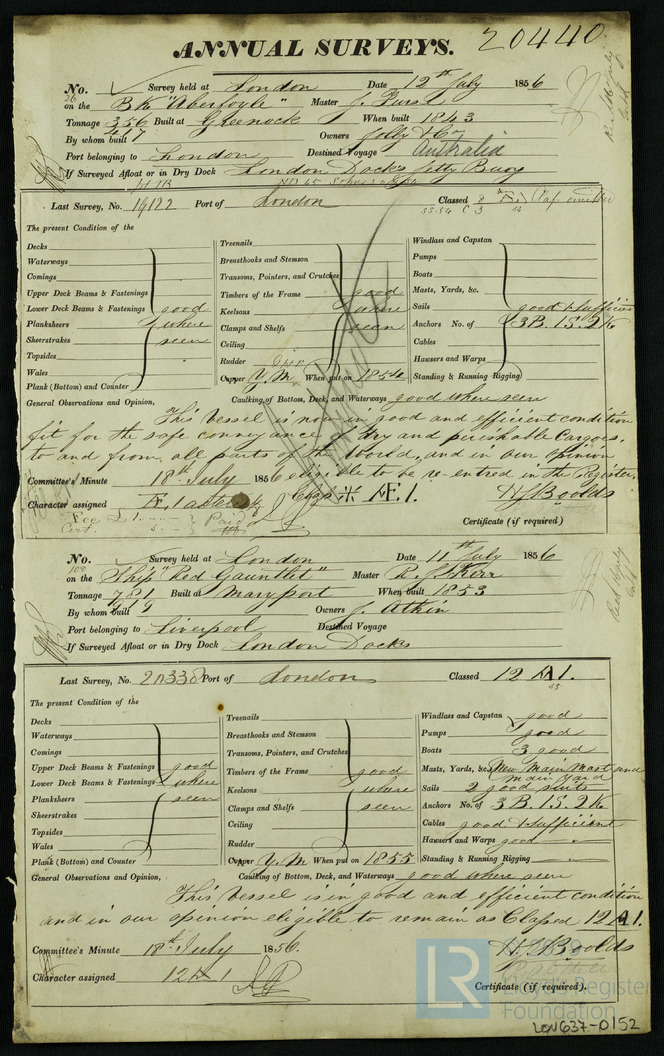 ANNUAL SURVEYS. 20440
No. Survey held at London Date 12th July 1856
56
on the Bk "Aberfoyle" Master J. Furst
Tonnage 356 Built at Greenock When built 1843
417
By whom built Owners Jolly & Co
Port belonging to London Destined Voyage Australia
If Surveyed Afloat or in Dry Dock London Docks Jetty Buoy
Last Survey, No. 19122 Port of London Classed
The present Condition of the
Decks
Waterways
Comings
Upper Deck Beams & Fastenings
Lower Deck Beams & Fastenings good
Planksheers where
Sheerstrakes seen
Topsides
Wales
Plank (Bottom) and Counter
Treenails
Breasthooks and Stemson
Transoms, Pointers, and Crutches
Timbers of the Frame good
Keelsons where
Clamps and Shelfs seen
Ceiling
Rudder
Copper Y.M When put on 1854
Windlass and Capstan
Pumps
Boats
Masts, Yards, &c.
Sails good & sufficient
Anchors No. of 3B. 1S. 2K
Cables
Hawsers and Warps
Standing & Running Rigging
General Observations and Opinion, Caulking of Bottom, Deck, and Waterways good where seen
This vessel is now in good and efficient condition
fit for the safe conveyance of dry and perishable Cargoes,
to and from all parts of the World, and in our opinion
eligible to be re-entred in the Register.
Committee's Minute 18th July 1856
Character assigned Æ. 1 asterisk Class ✳ Æ. 1. H J Boolds
Fee £1 Paid
Cert.
Certificate (if required)
No. Survey held at London Date 11th July 1856
108
on the Ship "Red Gauntlet" Master R. J. Kerr
Tonnage 781 Built at Maryport When built 1853
By whom built Owners J. Atkin
Port belonging to Liverpool Destined Voyage
If Surveyed Afloat or in Dry Dock London Docks
Last Survey, No. 20338 Port of London Classed 12 A 1.
53
The present Condition of the
Decks
Waterways
Comings
Upper Deck Beams & Fastenings good
Lower Deck Beams & Fastenings where
Planksheers seen
Sheerstrakes
Topsides
Wales
Plank (Bottom) and Counter
Treenails
Breasthooks and Stemson
Transoms, Pointers, and Crutches
Timbers of the Frame good
Keelsons where
Clamps and Shelfs seen
Ceiling
Rudder
Copper Y.M When put on 1855
Windlass and Capstan good
Pumps good
Boats 3 good
Masts, Yards, &c. New Main Mast and
Main Yard
Sails 2 good suits
Anchors No. of 3 B. 1S. 2K
Cables good & sufficient
Hawsers and Warps good
Standing & Running Rigging
General Observations and Opinion, Caulking of Bottom, Deck, and Waterways good where seen
This vessel is in good and efficient condition
and in our opinion eligible to remain as Classed 12 A 1.
Committee's Minute 18th July 1856. H J Boolds
Character assigned 12 A 1
Certificate (if required).
LR Lloyd's Register
Foundation
LON637-0152